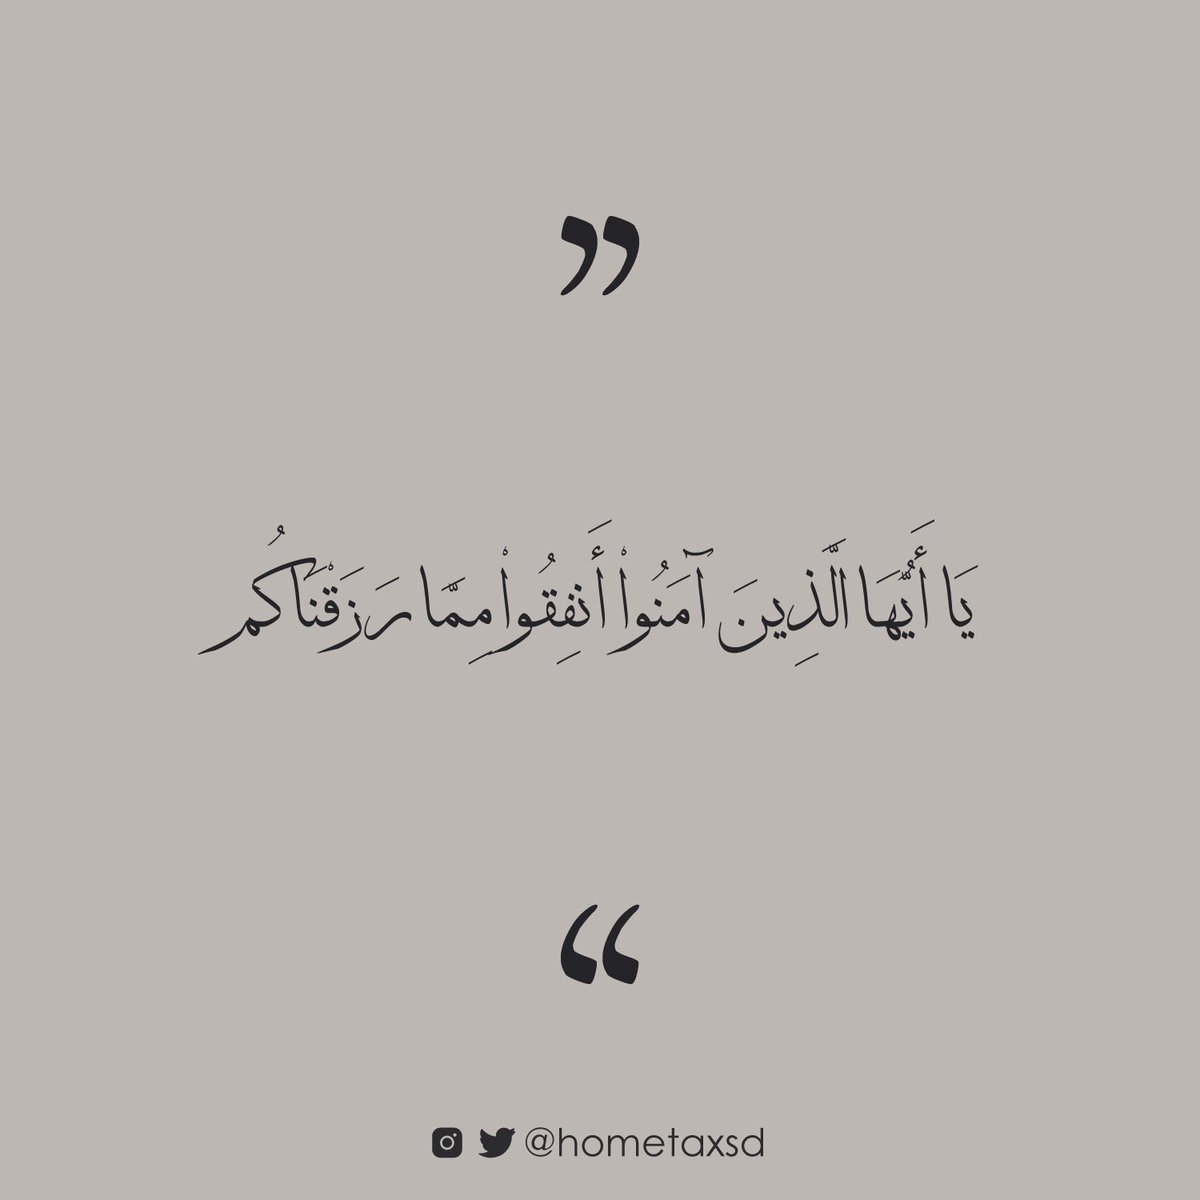 ”
يَا أَيُّهَا الَّذِينَ آمَنُواْ أَنفِقُواْ مِمَّا رَزَقْنَاكُم
“
@hometaxsd